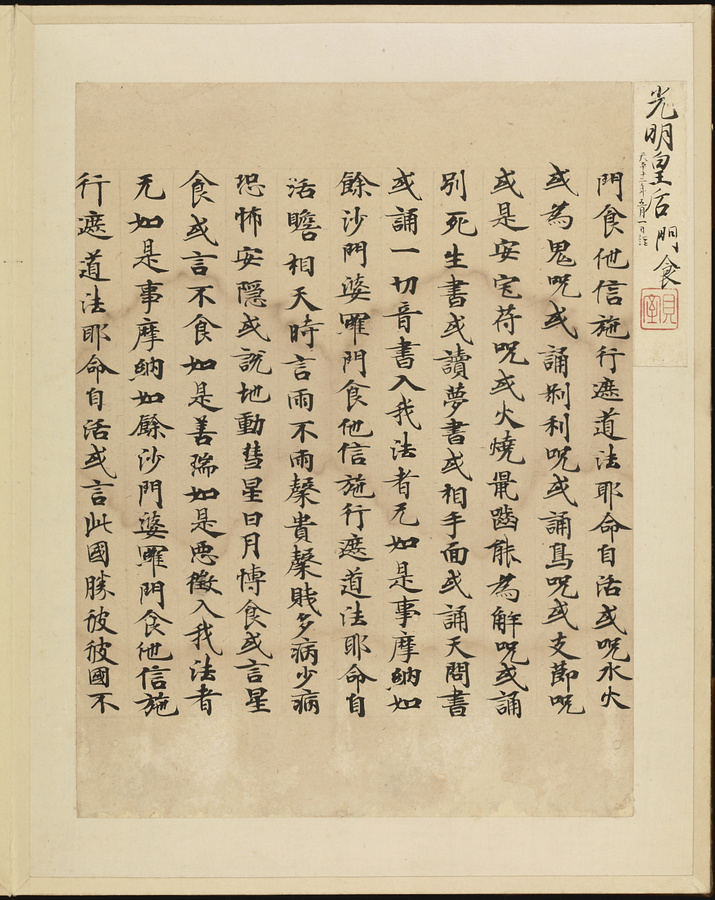 光明皇后 門食
天平十二年五月一日記
門食他信施行遮道法耶命自活或呪水火
或為鬼呪或誦剎利呪或誦鳥呪或支節呪
或是安宅苻呪或火燒鼠齧能為解呪或誦
別死生書或讀夢書或相手面或誦天問書
或誦一切音書入我法者无如是事摩納如
餘沙門婆羅門食他信施行遮道法耶命自
活瞻相天時言雨不雨糓貴糓賤多病少病
恐怖安隱或說地動彗星日月愽食或言星
食或言不食如是善瑞如是惡徵入我法者
无如是事摩納如餘沙門婆羅門食他信施
行遮道法耶命自活或言此國勝彼彼國不